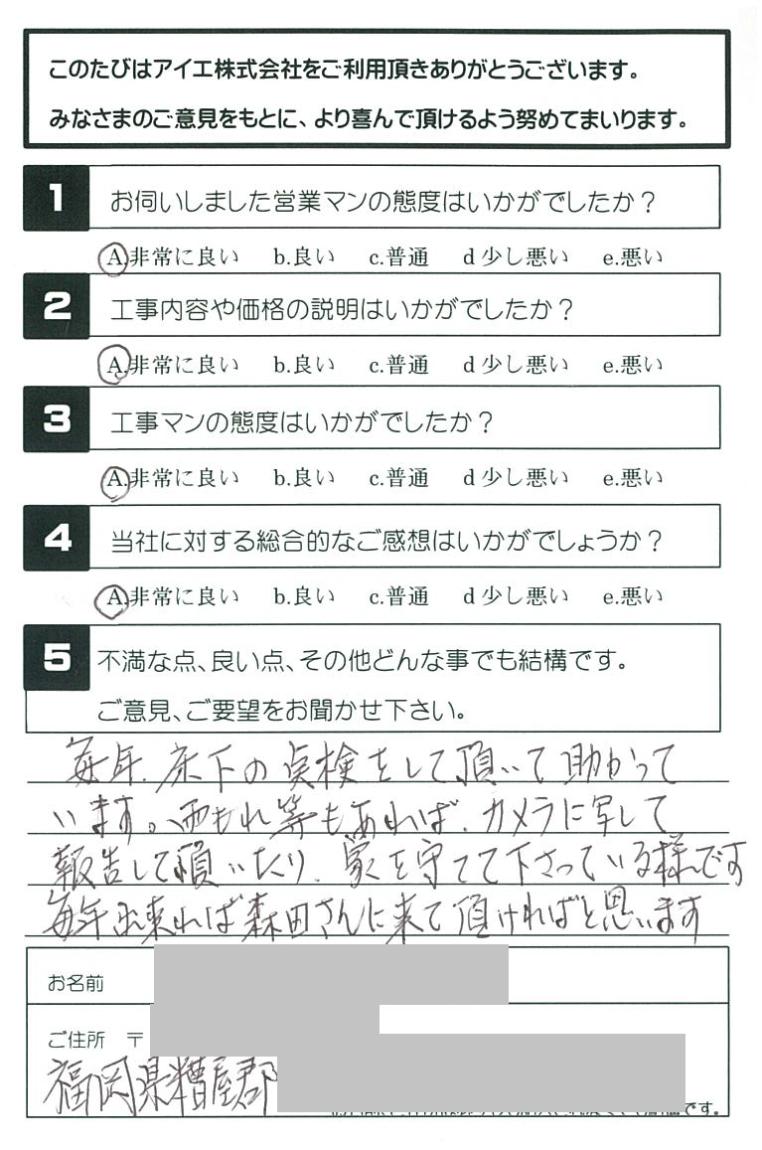 このたびはアイエ株式会社をご利用頂きありがとうございます。
みなさまのご意見をもとに、より喜んで頂けるよう努めてまいります。
1 お伺いしました営業マンの態度はいかがでしたか？
A.非常に良い b.良い c.普通 d 少し悪い e.悪い
2 工事内容や価格の説明はいかがでしたか？
A.非常に良い b.良い c.普通 d 少し悪い e.悪い
3 工事マンの態度はいかがでしたか？
A.非常に良い b.良い c.普通 d 少し悪い e.悪い
4 当社に対する総合的なご感想はいかがでしょうか？
A.非常に良い b.良い c.普通 d 少し悪い e.悪い
5 不満な点、良い点、その他どんな事でも結構です。
ご意見、ご要望をお聞かせ下さい。
毎年、床下の点検をして頂いて助かって
います。雨もれ等もあれば、カメラに写して
報告して頂いたり、家を守てて下さっている様です
毎年出来れば森田さんに来て頂ければと思います
お名前
ご住所 〒
福岡県糟屋郡
です。